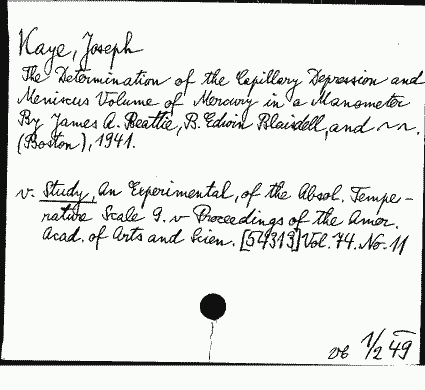 Kaye, Joseph
The Determination of the Capillary Depression and
Meniscus Volume of Mercury in a Manometer
By James A. Beattie, B. Edwin Blaisdell, and ~~.
(Boston), 1941.
v. Study, An Experimental, of the Absol. Tempe-
rature Scale 9. v Proceedings of the Amer.
Acad. of Arts and Scien. [54313] Vol. 74. No. 11
1/2 49